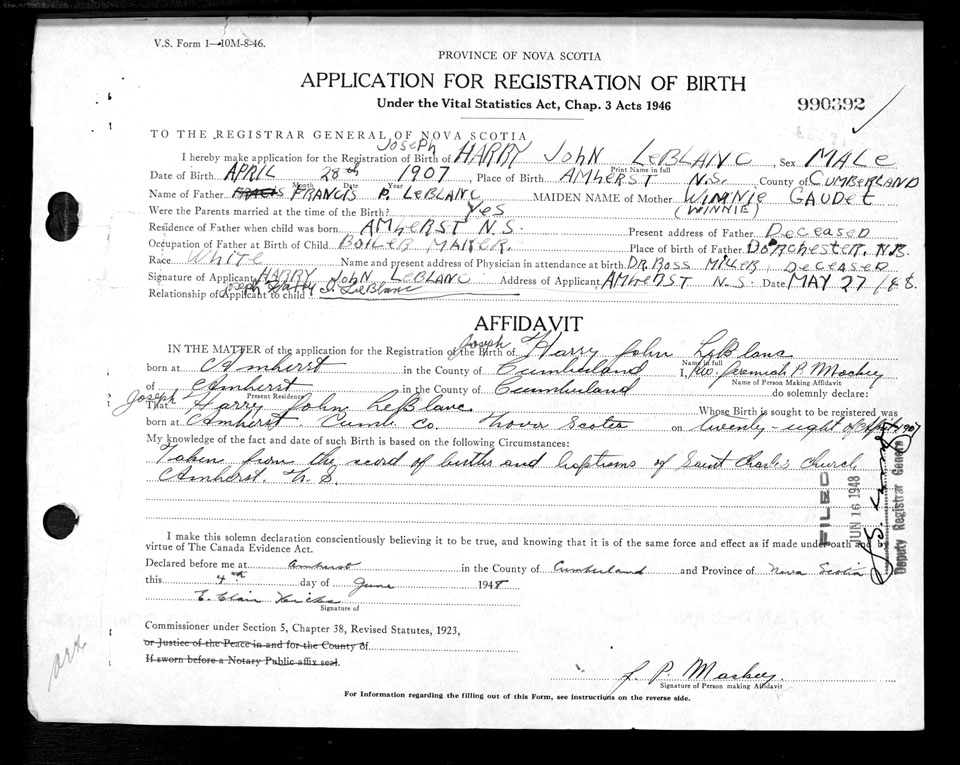 V.S. Form 1—10M-8-46.
PROVINCE OF NOVA SCOTIA
APPLICATION FOR REGISTRATION OF BIRTH
Under the Vital Statistics Act, Chap. 3 Acts 1946
990392
TO THE REGISTRAR GENERAL OF NOVA SCOTIA
Joseph
I hereby make application for the Registration of Birth of HARRY JOHN LEBLANC Sex MALE
Print Name in full
Date of Birth APRIL 28th 1907, Place of Birth AMHERST N.S. County of CUMBERLAND
Month Date Year
Name of Father FRANCIS P. LEBLANC MAIDEN NAME of Mother WINNIE GAUDET
(WINNIE)
Were the Parents married at the time of Birth? Yes
Residence of Father when child was born AMHERST N.S. Present address of Father DECEASED
Occupation of Father at Birth of Child BOILER MAKER. Place of birth of Father DORCHESTER, N.B.
Race WHITE Name and present address of Physician in attendance at birth DR. ROSS MILLER, DECEASED
Signature of Applicant HARRY JOHN LEBLANC Address of Applicant AMHERST N.S. Date MAY 27/48.
Joseph Harry J. LeBlanc
Relationship of Applicant to child
AFFIDAVIT
Joseph
IN THE MATTER of the application for the Registration of the Birth of Harry John LeBlanc
Name in full
born at Amherst in the County of Cumberland I, Rev. Jeremiah P. Mackey
Name of Person Making Affidavit
of Amherst in the County of Cumberland do solemnly declare:
Present Residence
Joseph
That Harry John LeBlanc Whose Birth is sought to be registered was
born at Amherst. Cumb. Co. Nova Scotia on twenty-eight of April 1907
My knowledge of the fact and date of such Birth is based on the following Circumstances:
Taken from the record of births and baptisms of Saint Charles Church
Amherst. N.S.
FILED
JUN 16 1948
Deputy Registrar General
I make this solemn declaration conscientiously believing it to be true, and knowing that it is of the same force and effect as if made under oath and by
virtue of The Canada Evidence Act.
Declared before me at Amherst in the County of Cumberland and Province of Nova Scotia
this 4th day of June 1948
E. Clair
Signature of
Commissioner under Section 5, Chapter 38, Revised Statutes, 1923,
or Justice of the Peace in and for the County of
If sworn before a Notary Public affix seal.
J. P. Mackey.
Signature of Person making Affidavit
For Information regarding the filling out of this Form, see instructions on the reverse side.